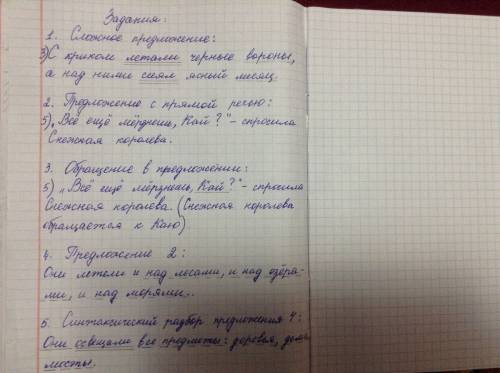 Задания:
1. Сложное предложение:
3) С криком летали черные вороны,
а над ними сиял ясный месяц.
2. Предложение с прямой речью:
5) „Всё ещё мёрзнешь, Кай?" - спросила
Снежная королева.
3. Обращение в предложении:
5) „Всё ещё мёрзнешь, Кай?" - спросила
Снежная королева. (Снежная королева
обращается к Каю)
4. Предложение 2:
Они летели и над лесами, и над озёра-
ми, и над морями..
5. Синтаксический разбор предложения 4:
Они освещали все предметы: деревья, дома,
мосты.